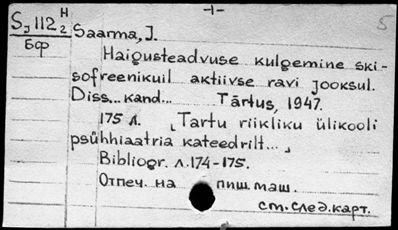 -1-
5
SJ 112 2 H
Бф
Saarma, J.
Haigusteadvuse kulgemine ski-
sofreenikuil aktiivse ravi jooksul.
Diss... kand... Tārtus, 1947.
175 л. „Tartu riikliku ülikooli
psühhiaatria kateedrilt...„
Bibliogr. л.174-175.
Отпеч. на пиш. маш.
см. след. карт.